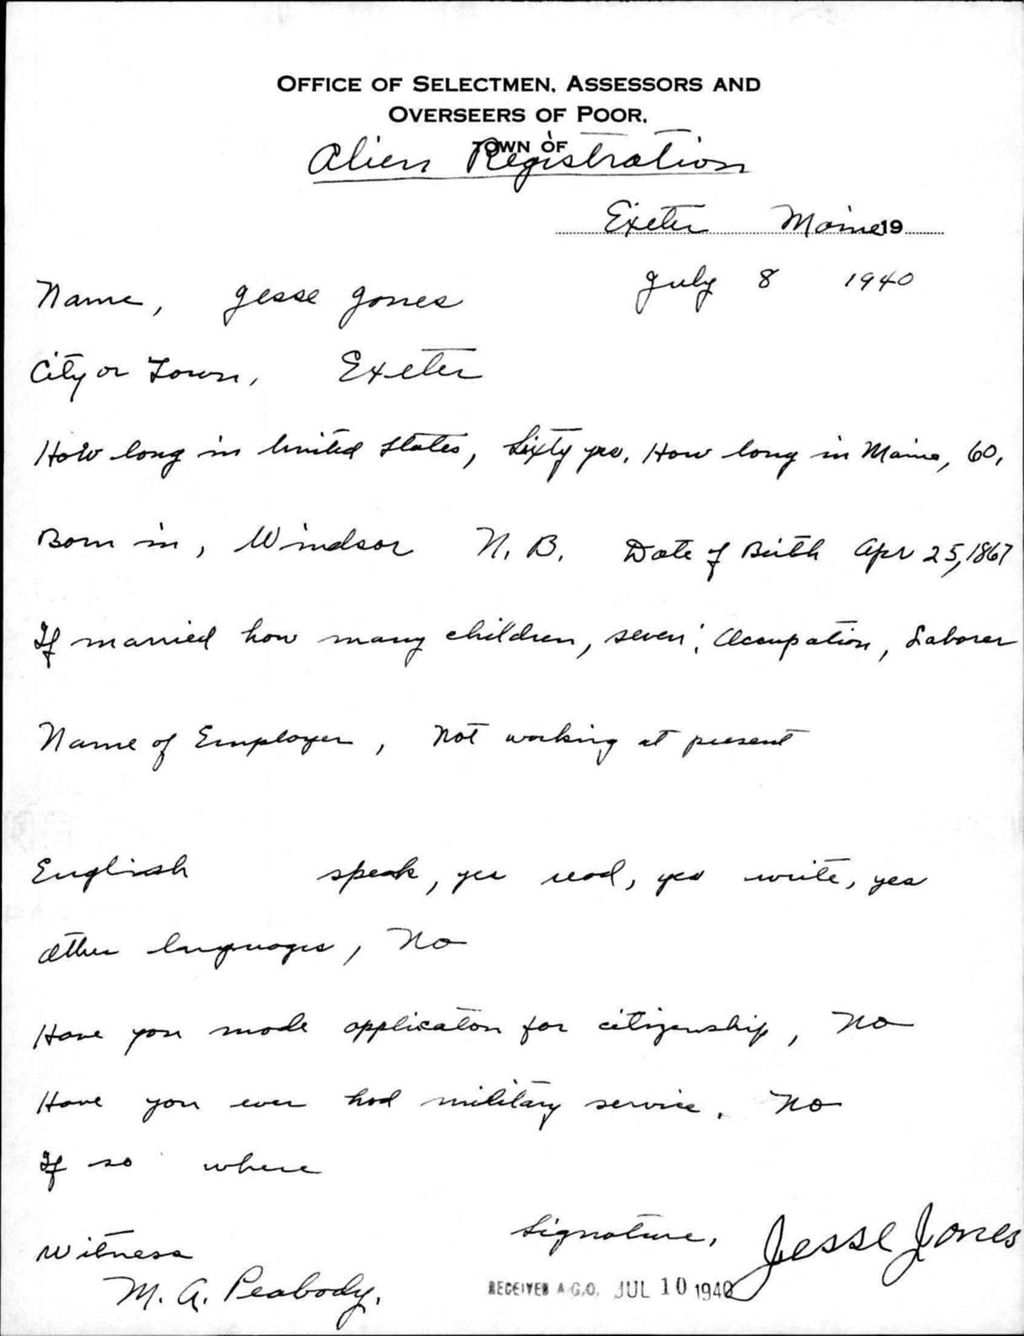 OFFICE OF SELECTMEN, ASSESSORS AND
OVERSEERS OF POOR,
TOWN OF
Alien Registration
Exeter Maine 19
July 8 1940
Name, Jesse Jones
City or Town, Exeter
How long in United States, Sixty yrs. How long in Maine, 60,
Born in, Windsor N. B. Date of Birth Apr 25, 1867
If married how many children, seven, Occupation, Laborer
Name of Employer, Not working at present
English speak, yes read, yes write, yes
Other languages, No
Have you made applicaton for citizenship, No
Have you ever had military service, No
If so where
Signature, Jesse Jones
Witness
M. A. Peabody.
RECEIVED A.G.O. JUL 10 1940